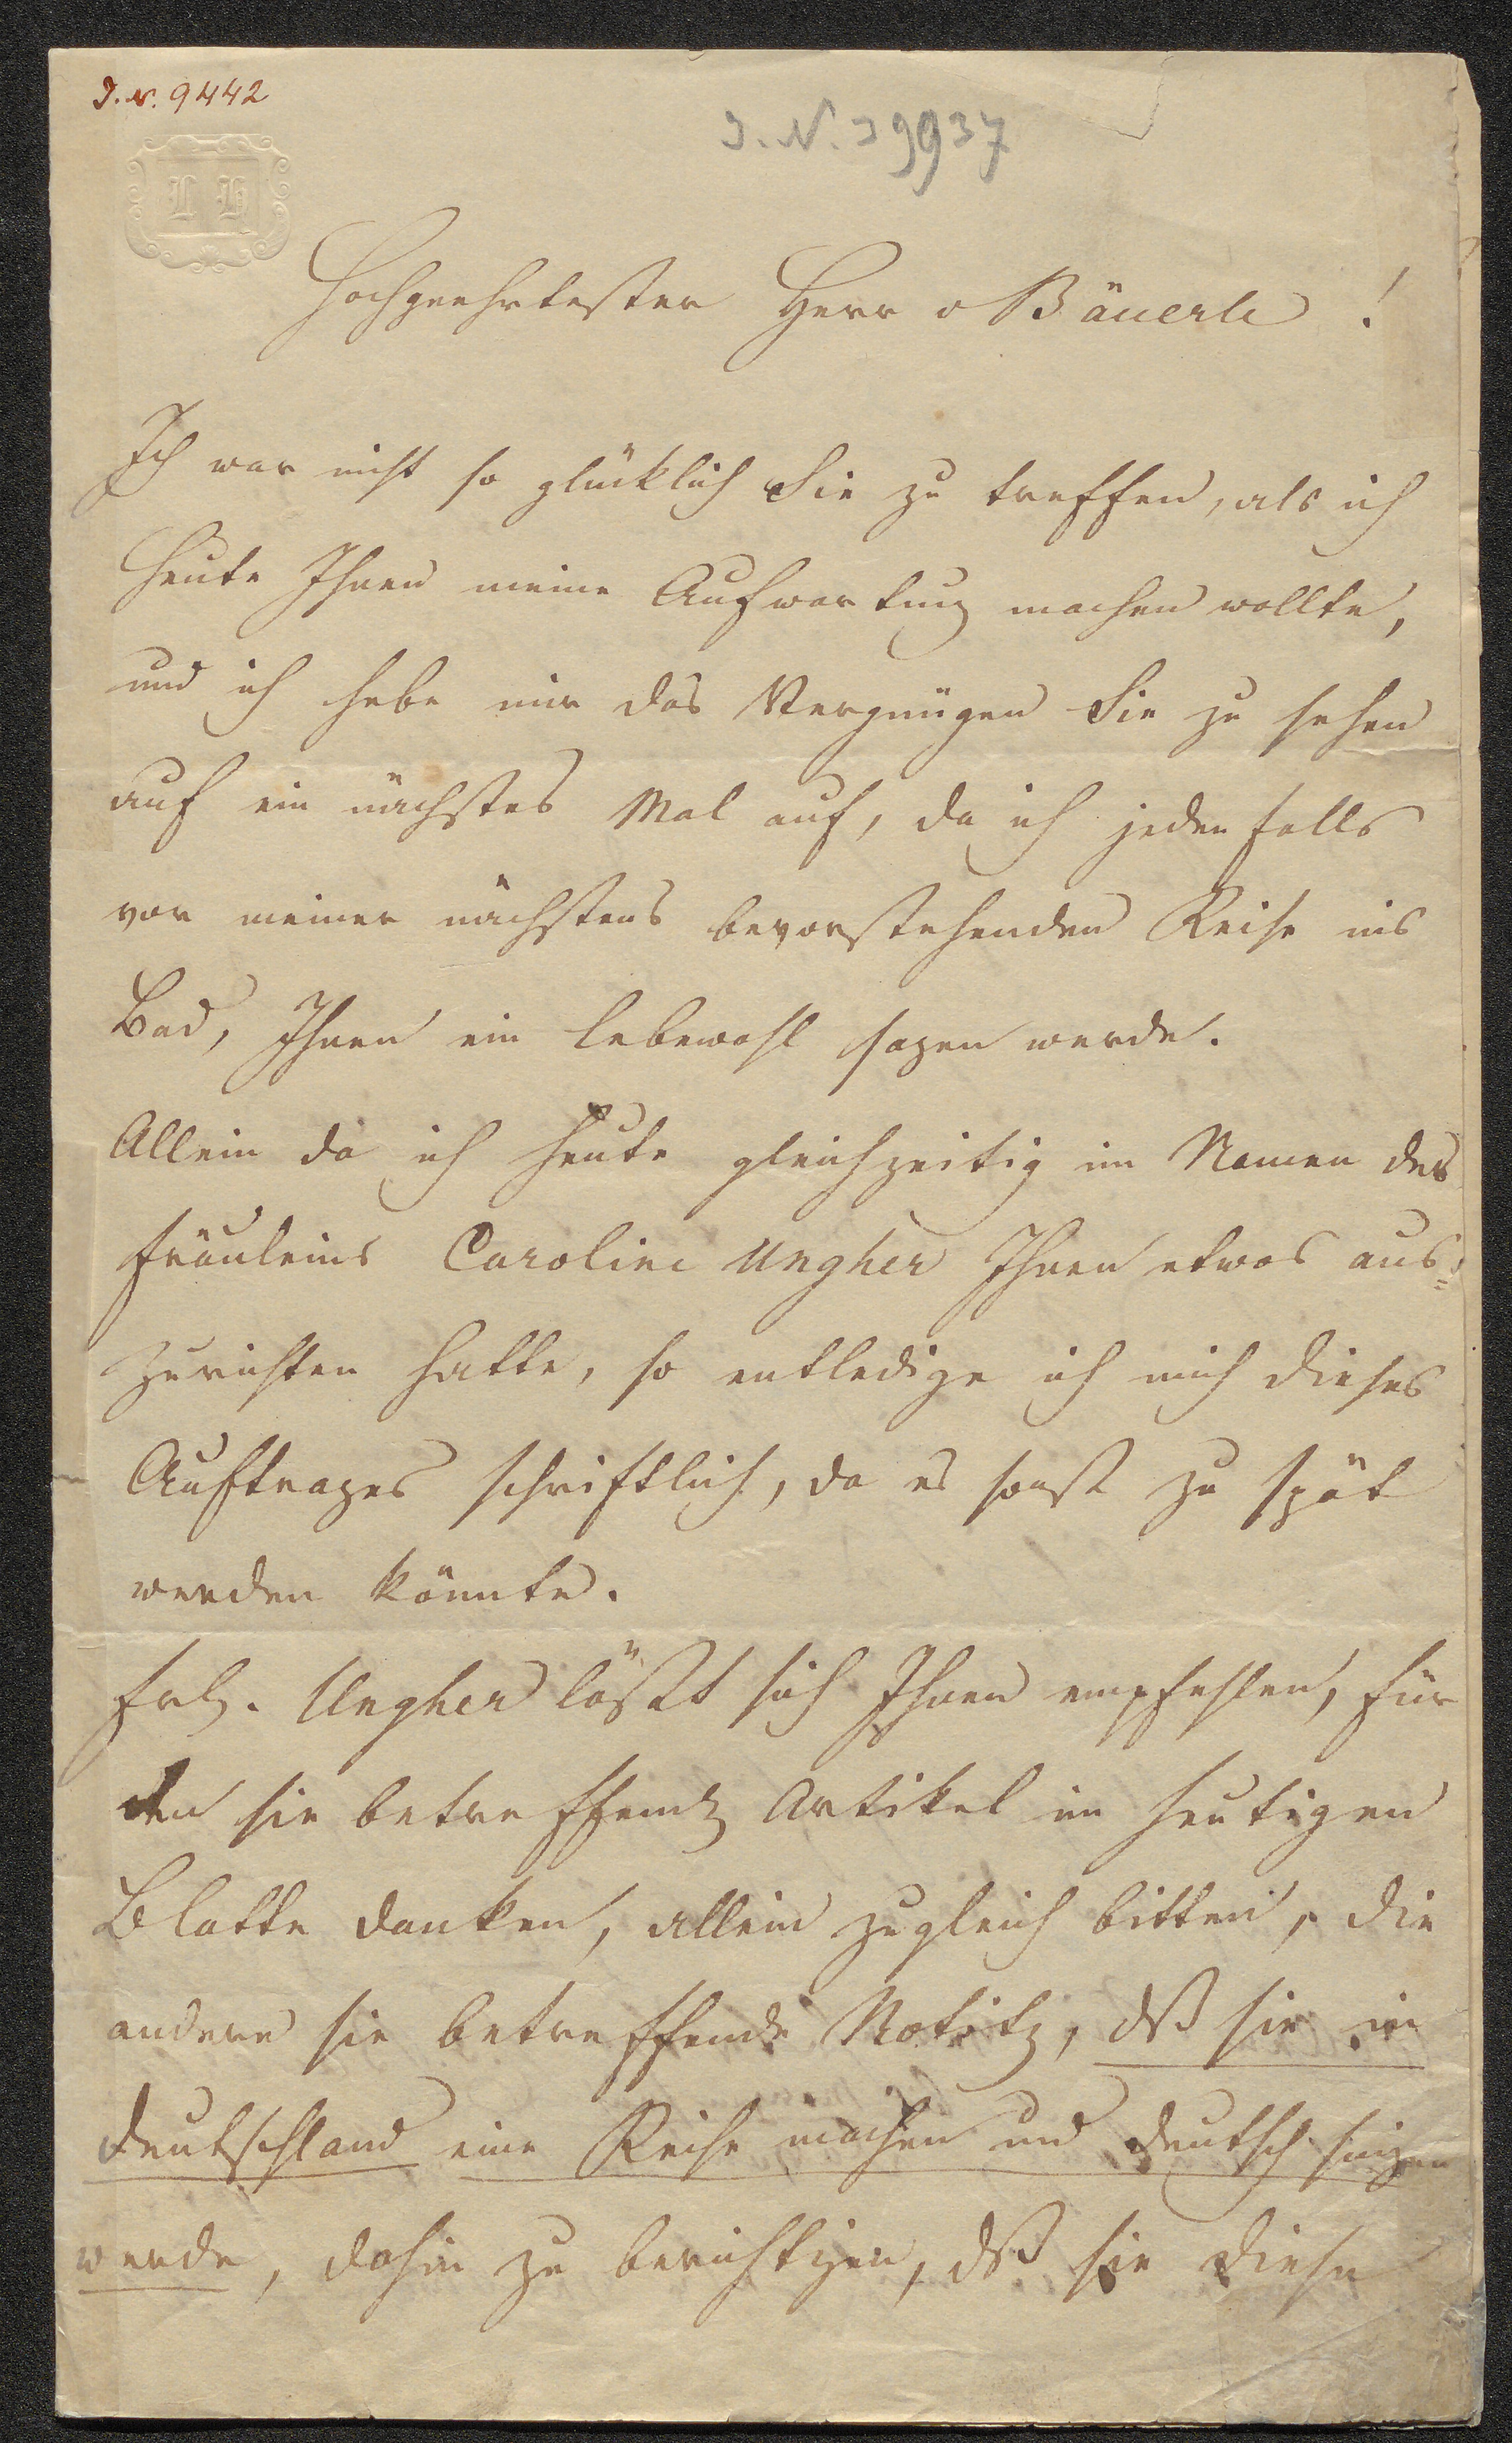 I. N. 9442
I. N. 39937
L H
Hochgeehrtester Herr v Bäuerle!
Ich war nicht so glücklich Sie zu treffen, als ich
heute Ihnen meine Aufwartung machen wollte,
und ich hebe mir das Vergnügen Sie zu sehen
auf ein nächstes Mal auf, da ich jeden falls
vor meiner nächstens bevorstehenden Reise ins
Bad, Ihnen ein Lebewohl sagen werde.
Allein da ich heute gleichzeitig im Namen des
Fräuleins Caroline Ungher Ihnen etwas aus=
zurichten hatte, so entledige ich mich dieses
Auftrages schriftlich, da es sonst zu spät
werden könnte.
Frl. Ungher läßt sich Ihnen empfehlen, für
den sie betreffend Artikel im heutigen
Blatte danken, allein zugleich bitten, die
andere sie betreffende Notitz, dß sie in
Deutschland eine Reise machen und deutsch singen
werde, dahin zu berichtigen, dß sie diese